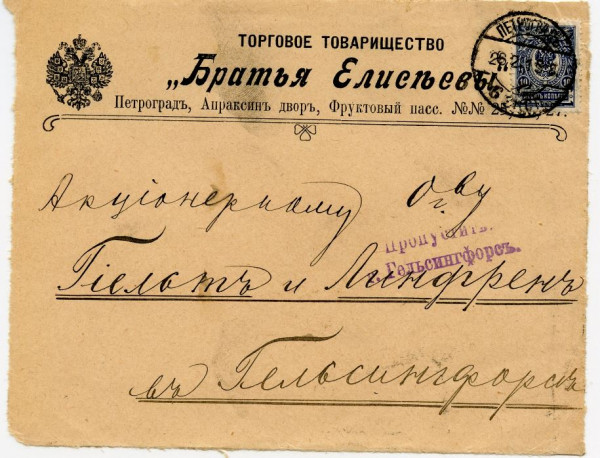 ТОРГОВОЕ ТОВАРИЩЕСТВО
„Братья Елисѣевъ
Петроградъ, Апраксинъ дворъ, Фруктовый пасс. №№ 25,
Акціонерному О-ву
Пропустить.
Гельсингфорсъ.
Гіельтъ и Линдгренъ
въ Гельсингфорсѣ